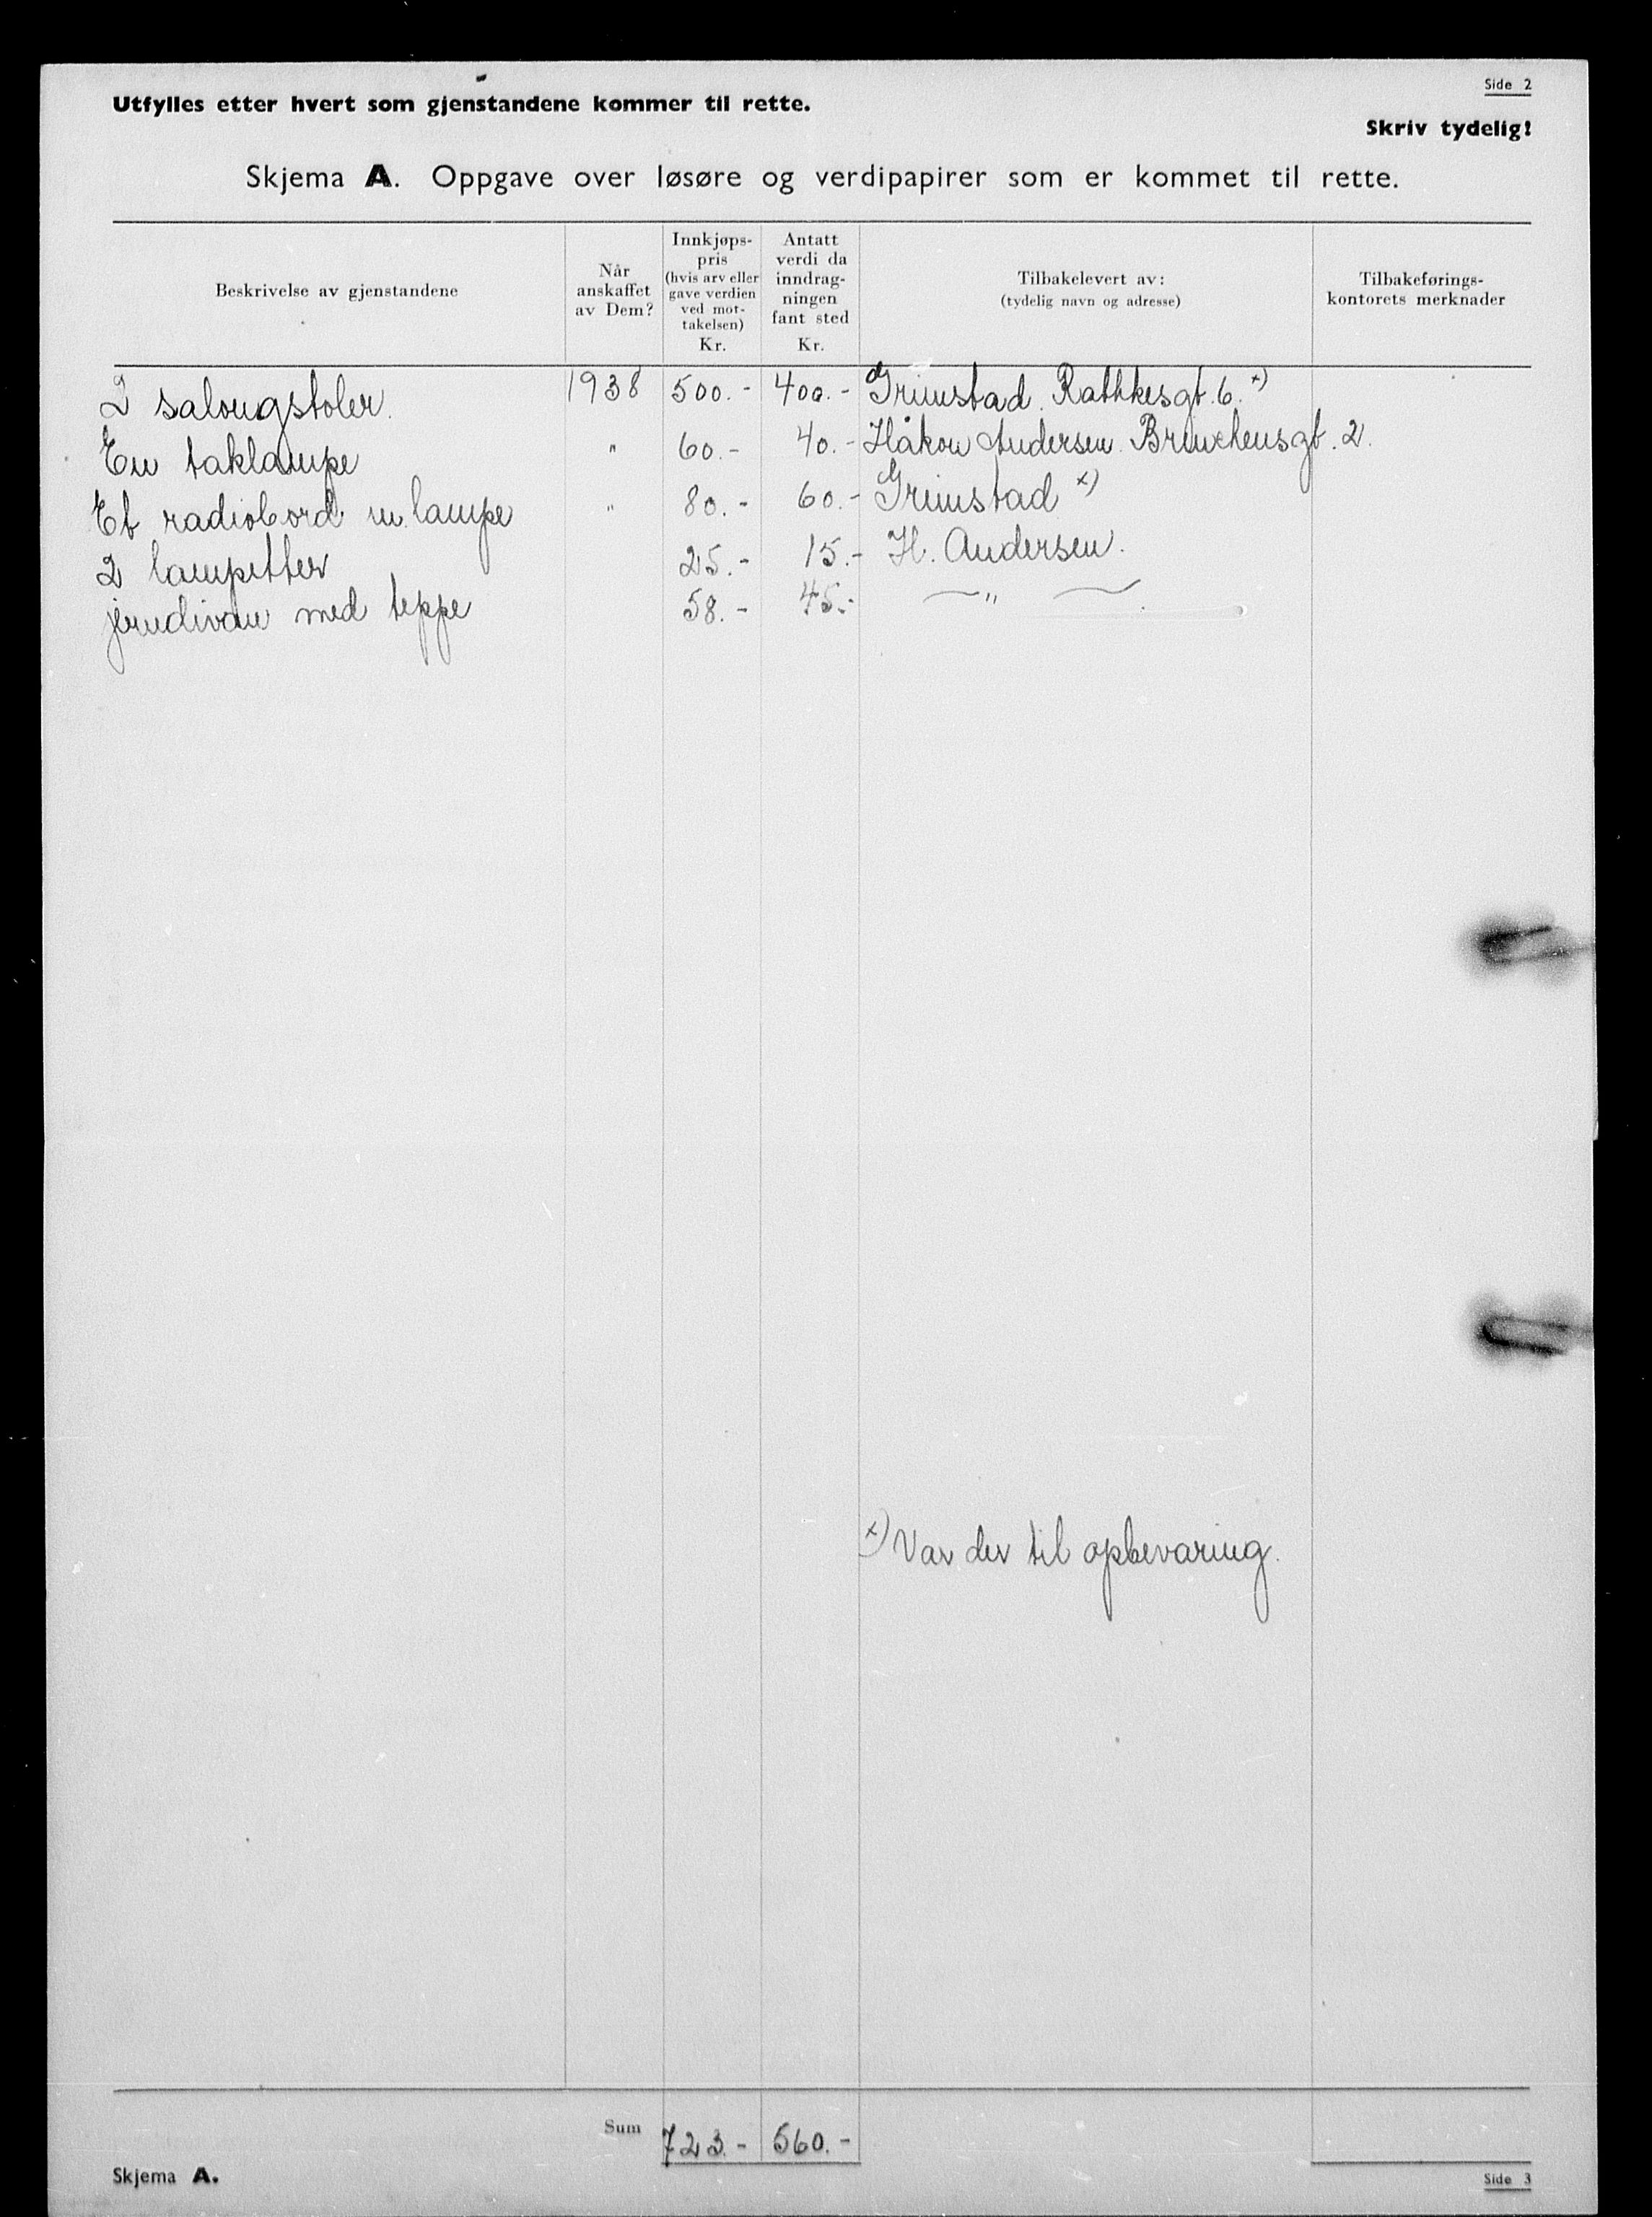 Side 2
Utfylles etter hvert som gjenstandene kommer til rette.
Skriv tydelig!
Skjema A. Oppgave over løsøre og verdipapirer som er kommet til rette.
Beskrivelse av gjenstandene
Når anskaffet av Dem?
Innkjøps-pris (hvis arv eller gave verdien ved mot-takelsen) Kr.
Antatt verdi da inndrag-ningen fant sted Kr.
Tilbakelevert av: (tydelig navn og adresse)
Tilbakeførings-kontorets merknader
2 salongstoler. 1938 500.- 400.- Grimstad. Rathkesgt. 6. x)
En taklampe " 60.- 40.- Håkon Andersen. Brinchensgt. 2.
Et radiobord m. lampe " 80.- 60.- Grimstad x)
2 lampetter 25.- 15.- H. Andersen.
jerndivan med teppe 58.- 45.- — " —
x) Var der til opbevaring.
Sum 723.- 560.-
Skjema A.
Side 3